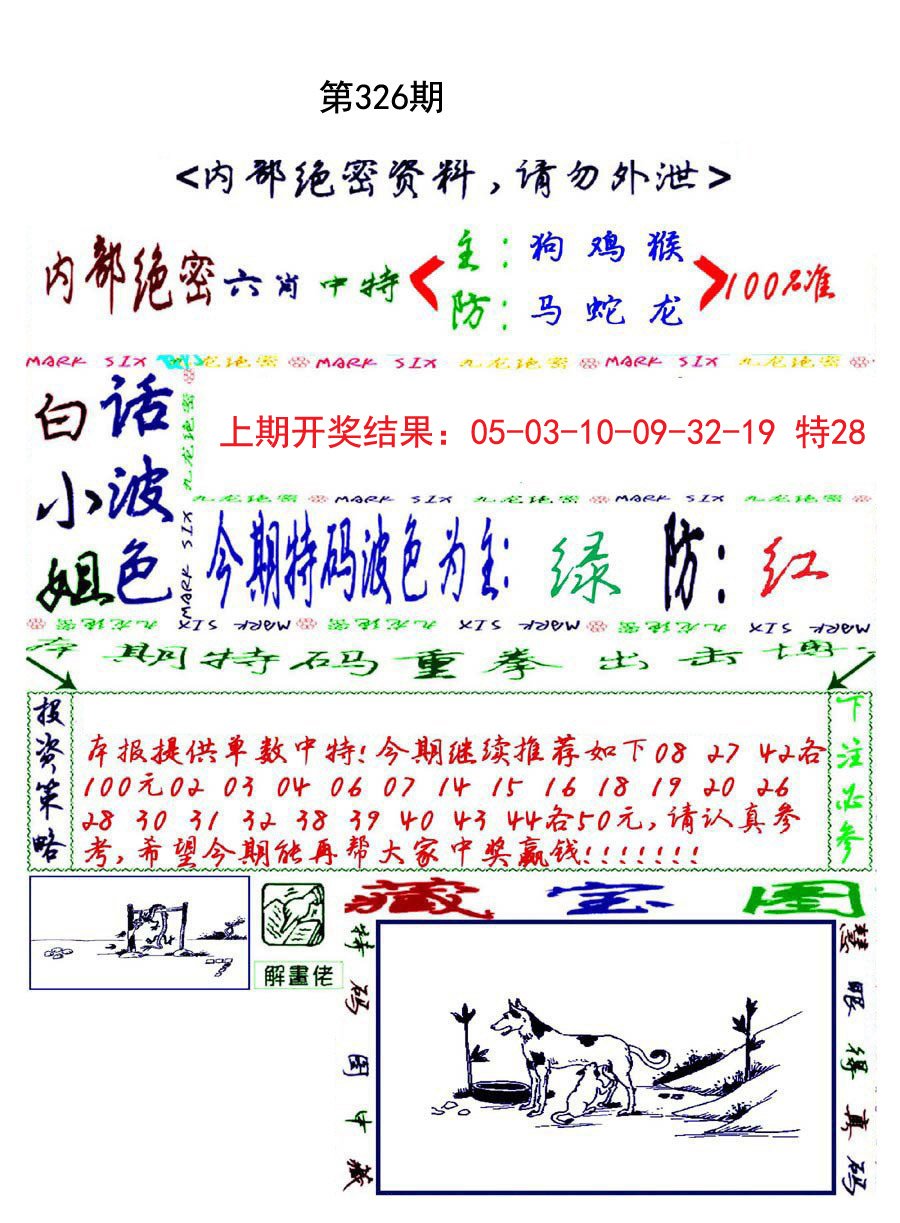 第326期
<内部绝密资料,请勿外泄>
内部绝密六肖中特
主: 狗 鸡 猴
防: 马 蛇 龙
100%准
MARK SIX 九龙绝密 MARK SIX 九龙绝密 MARK SIX 九龙绝密
白小姐
话波色
九龙绝密 MARK SIX
上期开奖结果：05-03-10-09-32-19 特28
九龙绝密 MARK SIX 九龙绝密 MARK SIX 九龙绝密
今期特码波色为主: 绿 防: 红
九龙绝密 MARK SIX 九龙绝密 MARK SIX 九龙绝密 MARK SIX
本期特码重拳出击博
投资策略
本报提供单数中特!今期继续推荐如下08 27 42各
100元02 03 04 06 07 14 15 16 18 19 20 26
28 30 31 32 38 39 40 43 44各50元,请认真参
考,希望今期能再帮大家中奖赢钱!!!!!!!
下注必参
解畫佬
藏宝图
特码图中藏
慧眼得真码